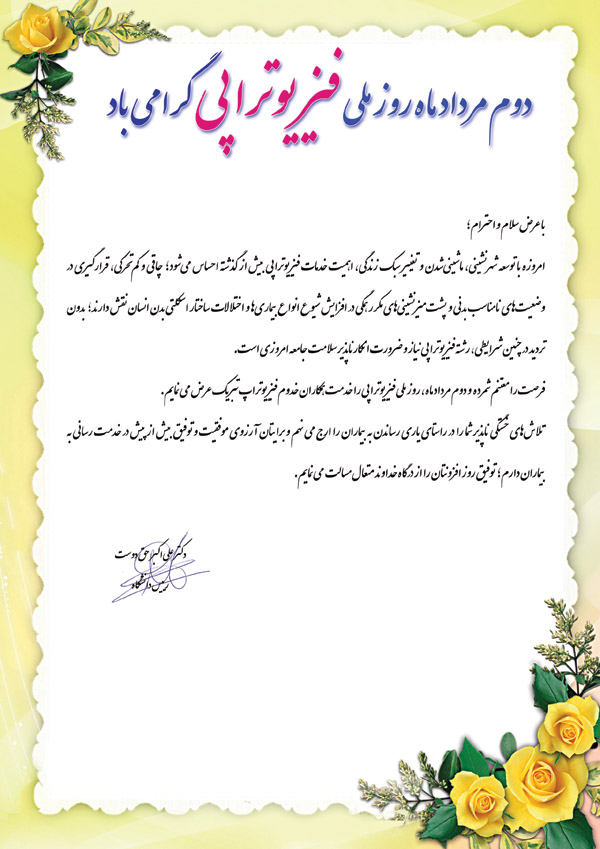 دوم مرداد ماه روز ملی فیزیوتراپی گرامی باد
با عرض سلام و احترام؛
امروزه با توسعه شهرنشینی، ماشینی شدن و تغییر سبک زندگی، اهمیت خدمات فیزیوتراپی بیش از گذشته احساس می شود؛ چاقی و کم تحرکی، قرارگیری در
وضعیت های نامناسب بدنی و پشت میز نشینی های مکرر همگی در افزایش شیوع انواع بیماری ها و اختلالات ساختار اسکلتی بدن انسان نقش دارند؛ بدون
تردید در چنین شرایطی، رشته فیزیوتراپی نیاز و ضرورت انکار ناپذیر سلامت جامعه امروزی است.
فرصت را مغتنم شمرده و دوم مرداد ماه، روز ملی فیزیوتراپی را خدمت همکاران خدوم فیزیوتراپ تبریک عرض می نمایم.
تلاش های خستگی ناپذیر شما را در راستای یاری رساندن به بیماران را ارج می نهم و برایتان آرزوی موفقیت و توفیق بیش از پیش در خدمت رسانی به
بیماران دارم؛ توفیق روز افزونتان را از درگاه خداوند متعال مسالت می نمایم.
دکتر علی اکبر حق دوست
رییس دانشگاه